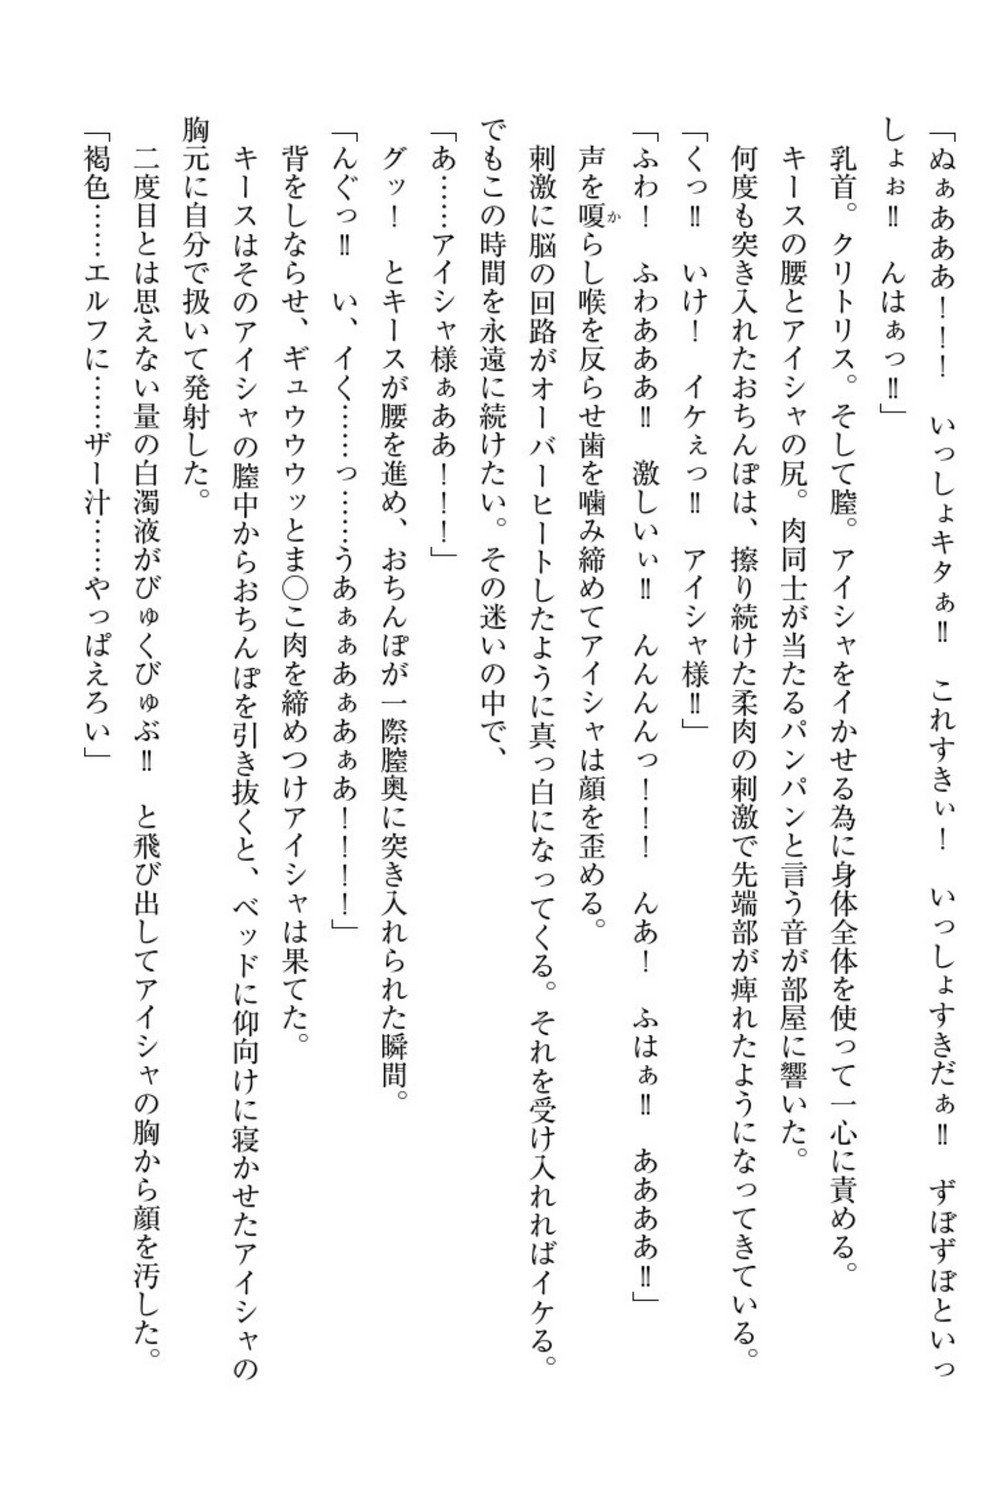 「ぬぁあああ！！！　いっしょキタぁ‼　これすきぃ！　いっしょすきだぁ‼　ずぼずぼといっ
しょぉ‼　んはぁっ‼」
　乳首。クリトリス。そして膣。アイシャをイかせる為に身体全体を使って一心に責める。
　キースの腰とアイシャの尻。肉同士が当たるパンパンと言う音が部屋に響いた。
　何度も突き入れたおちんぽは、擦り続けた柔肉の刺激で先端部が痺れたようになってきている。
「くっ‼　いけ！　イケぇっ‼　アイシャ様‼」
「ふわ！　ふわあああ‼　激しいぃ‼　んんんんっ！！！　んあ！　ふはぁ‼　ああああ‼」
　声を嗄らし喉を反らせ歯を噛み締めてアイシャは顔を歪める。
か
　刺激に脳の回路がオーバーヒートしたように真っ白になってくる。それを受け入れればイケる。
でもこの時間を永遠に続けたい。その迷いの中で、
「あ……アイシャ様ぁああ！！！」
　グッ！　とキースが腰を進め、おちんぽが一際膣奥に突き入れられた瞬間。
「んぐっ‼　い、イく……っ……うあぁぁあぁあぁあ！！！！」
　背をしならせ、ギュウウウッとま〇こ肉を締めつけアイシャは果てた。
　キースはそのアイシャの膣中からおちんぽを引き抜くと、ベッドに仰向けに寝かせたアイシャの
胸元に自分で扱いて発射した。
　二度目とは思えない量の白濁液がびゅくびゅぶ‼　と飛び出してアイシャの胸から顔を汚した。
「褐色……エルフに……ザー汁……やっぱえろい」